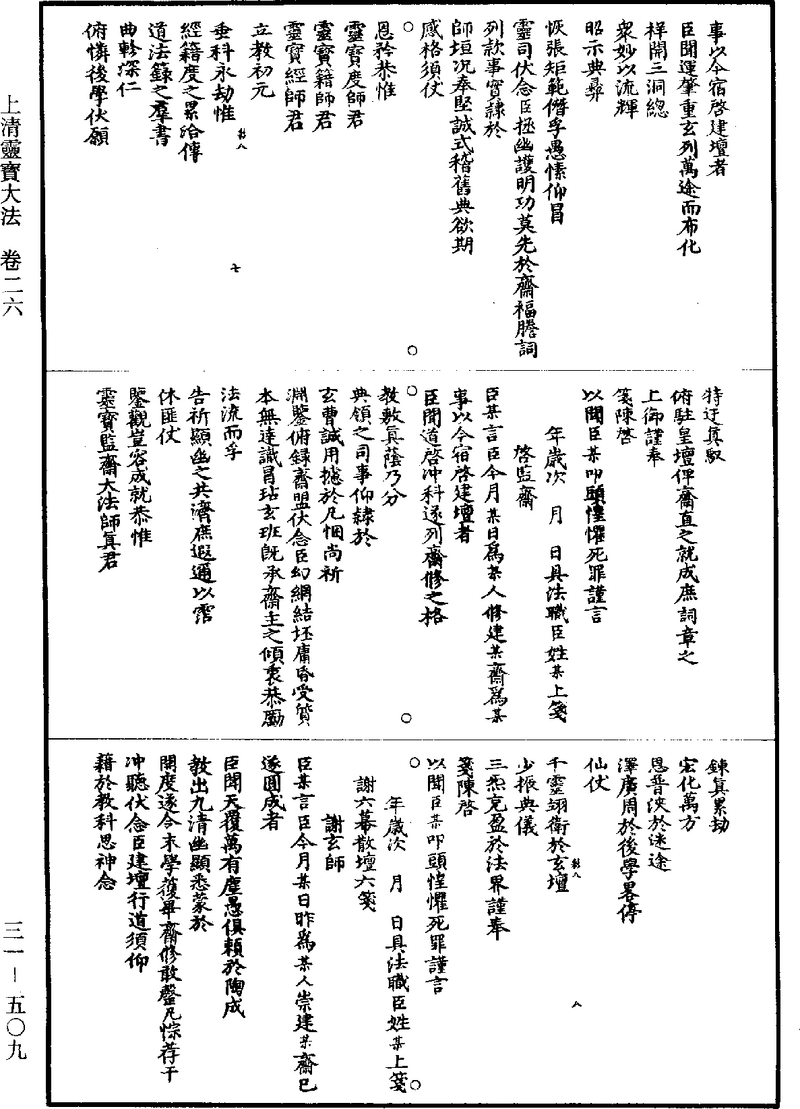 事以今宿啓建壇者
臣聞運肇重玄列萬途而布化
祥開三洞總
衆妙以流輝
昭示典彛
恢張矩範僭孚愚愫仰冒
靈司伏念臣拯幽護明功莫先於齋福騰詞
列欵事實隸於
師垣况奉堅誠式稽舊典欲期
感格須仗
恩矜恭惟
靈寳度師君
靈寳籍師君
靈寳經師君
立教初元
垂科永劫惟
經籍度之累給傳
道法籙之羣書
曲軫深仁
俯憐後學伏願
七
特迂眞馭
俯駐皇壇俾齋直之就成庶詞章之
上御謹奉
箋陳啓
以聞臣某叩頭惶懼死罪謹言
年歲次 月 日具法職臣姓某上箋
啓監齋
臣某言臣今月某日爲某人修建某齋爲某
事以今宿啓建壇者
臣聞道啓沖科遂列齋修之格
教敷眞蔭乃分
典領之司事仰隸於
玄曹誠用攄於凡悃尚祈
淵鑒俯錄齋盟伏念臣幻網結坯庸昏受質
本無達識冒玷玄班旣承齋主之傾衷恭勵
法流而孚
告祈顯幽之共濟庶遐邇以霑
休匪仗
鑒觀豈容成就恭惟
靈寳監齋大法師眞君
鍊眞累劫
宏化萬方
恩普浹於迷途
澤廣周於後學畧停
仙仗
千靈翊衛於玄壇
少振典儀
三炁克盈於法界謹奉
箋陳啓
以聞臣某叩頭惶懼死罪謹言
年歲次 月 日具法職臣姓某上箋
謝六幕散壇六箋
謝玄師
臣某言臣今月某日昨爲某人崇建某齋已
遂圓成者
臣聞天覆萬有塵愚俱賴於陶成
教出九清幽顯悉蒙於
開度遂令末學獲畢齋修敢罄凡悰荐干
冲聽伏念臣建壇行道須仰
藉於教科思神念
八
上清靈寶大法 卷二六
三一－五〇九